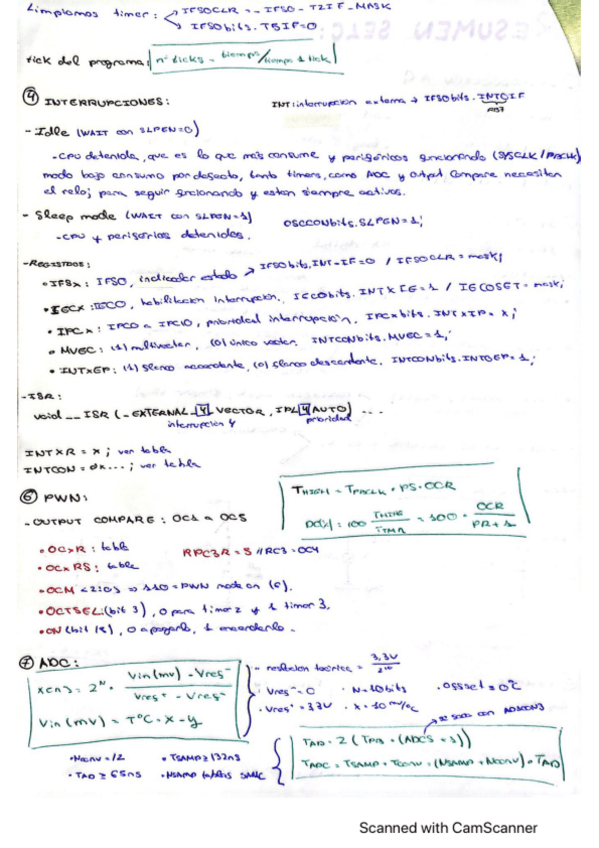 Limpiamos timer: IFS0CLR = _IFS0_T2IF_MASK
IFS0bits.T5IF=0
RESUMEN SETC:
tick del programa: nº ticks = tiempo/tiempo 1 tick
④ INTERRUPCIONES:
INT: interrupción externa → IFS0bits.INT0IF
- Idle (WAIT con SLPEN=0)
- CPU detenida, que es lo que más consume y periféricos funcionando (SYSCLK/PBCLK)
modo bajo consumo por defecto, tanto timers, como ADC y Output Compare necesitan
el reloj para seguir funcionando y están siempre activos.
- Sleep mode (WAIT con SLPEN=1) OSCCONbits.SLPEN=1;
- CPU y periféricos detenidos.
- REGISTROS:
• IFSx: IFS0, indicador estado → IFS0bits.INT-IF=0 / IFS0CLR = mask;
• IECx: IEC0, habilitación interrupción, IEC0bits.INTxIE=1 / IEC0SET = mask;
• IPCx: IPC0 a IPC10, prioridad interrupción, IPCxbits.INTxIP = x;
• MVEC: (1) multivector, (0) único vector, INTCONbits.MVEC = 1;
• INTxEP: (1) flanco ascendente, (0) flanco descendente, INTCONbits.INT0EP = 1;
- ISR:
void __ISR (_EXTERNAL_4_VECTOR, IPL4AUTO) ...
interrupción 4 prioridad
INTxR = x; ver tabla
INTCON = 0x...; ver tabla
⑥ PWN:
THIGH = TPBCLK · PS · OCR
- OUTPUT COMPARE: OC1 a OC5
DC(%) = 100 THIGH/TTMR = 100 · OCR/PR+1
• OCxR: tabla RPC3R = 5 // RC3 = OC4
• OCxRS: tabla
• OCM <2:0> => 110 = PWN mode on (6).
• OCTSEL: (bit 3), 0 para timer 2 y 1 timer 3.
• ON (bit 15), 0 apagarlo, 1 encenderlo.
⑦ ADC:
x[n] = 2^N · Vin(mv) - Vref⁻ / Vref⁺ - Vref⁻
Vin(mv) = TºC · x - y
3,3V
• Vref⁻ = 0 · N = 10 bits · offset = 0ºC
• Vref⁺ = 3,3V · x = 10 mV/ºC
TAD = 2 (TPB · (ADCS + 1))
TADC = TSAMP + TCONV = (NSAMP + NCONV) · TAD
• Nconv = 12 • TSAMP ≥ 132ns
• TAD ≥ 65ns
Scanned with CamScanner